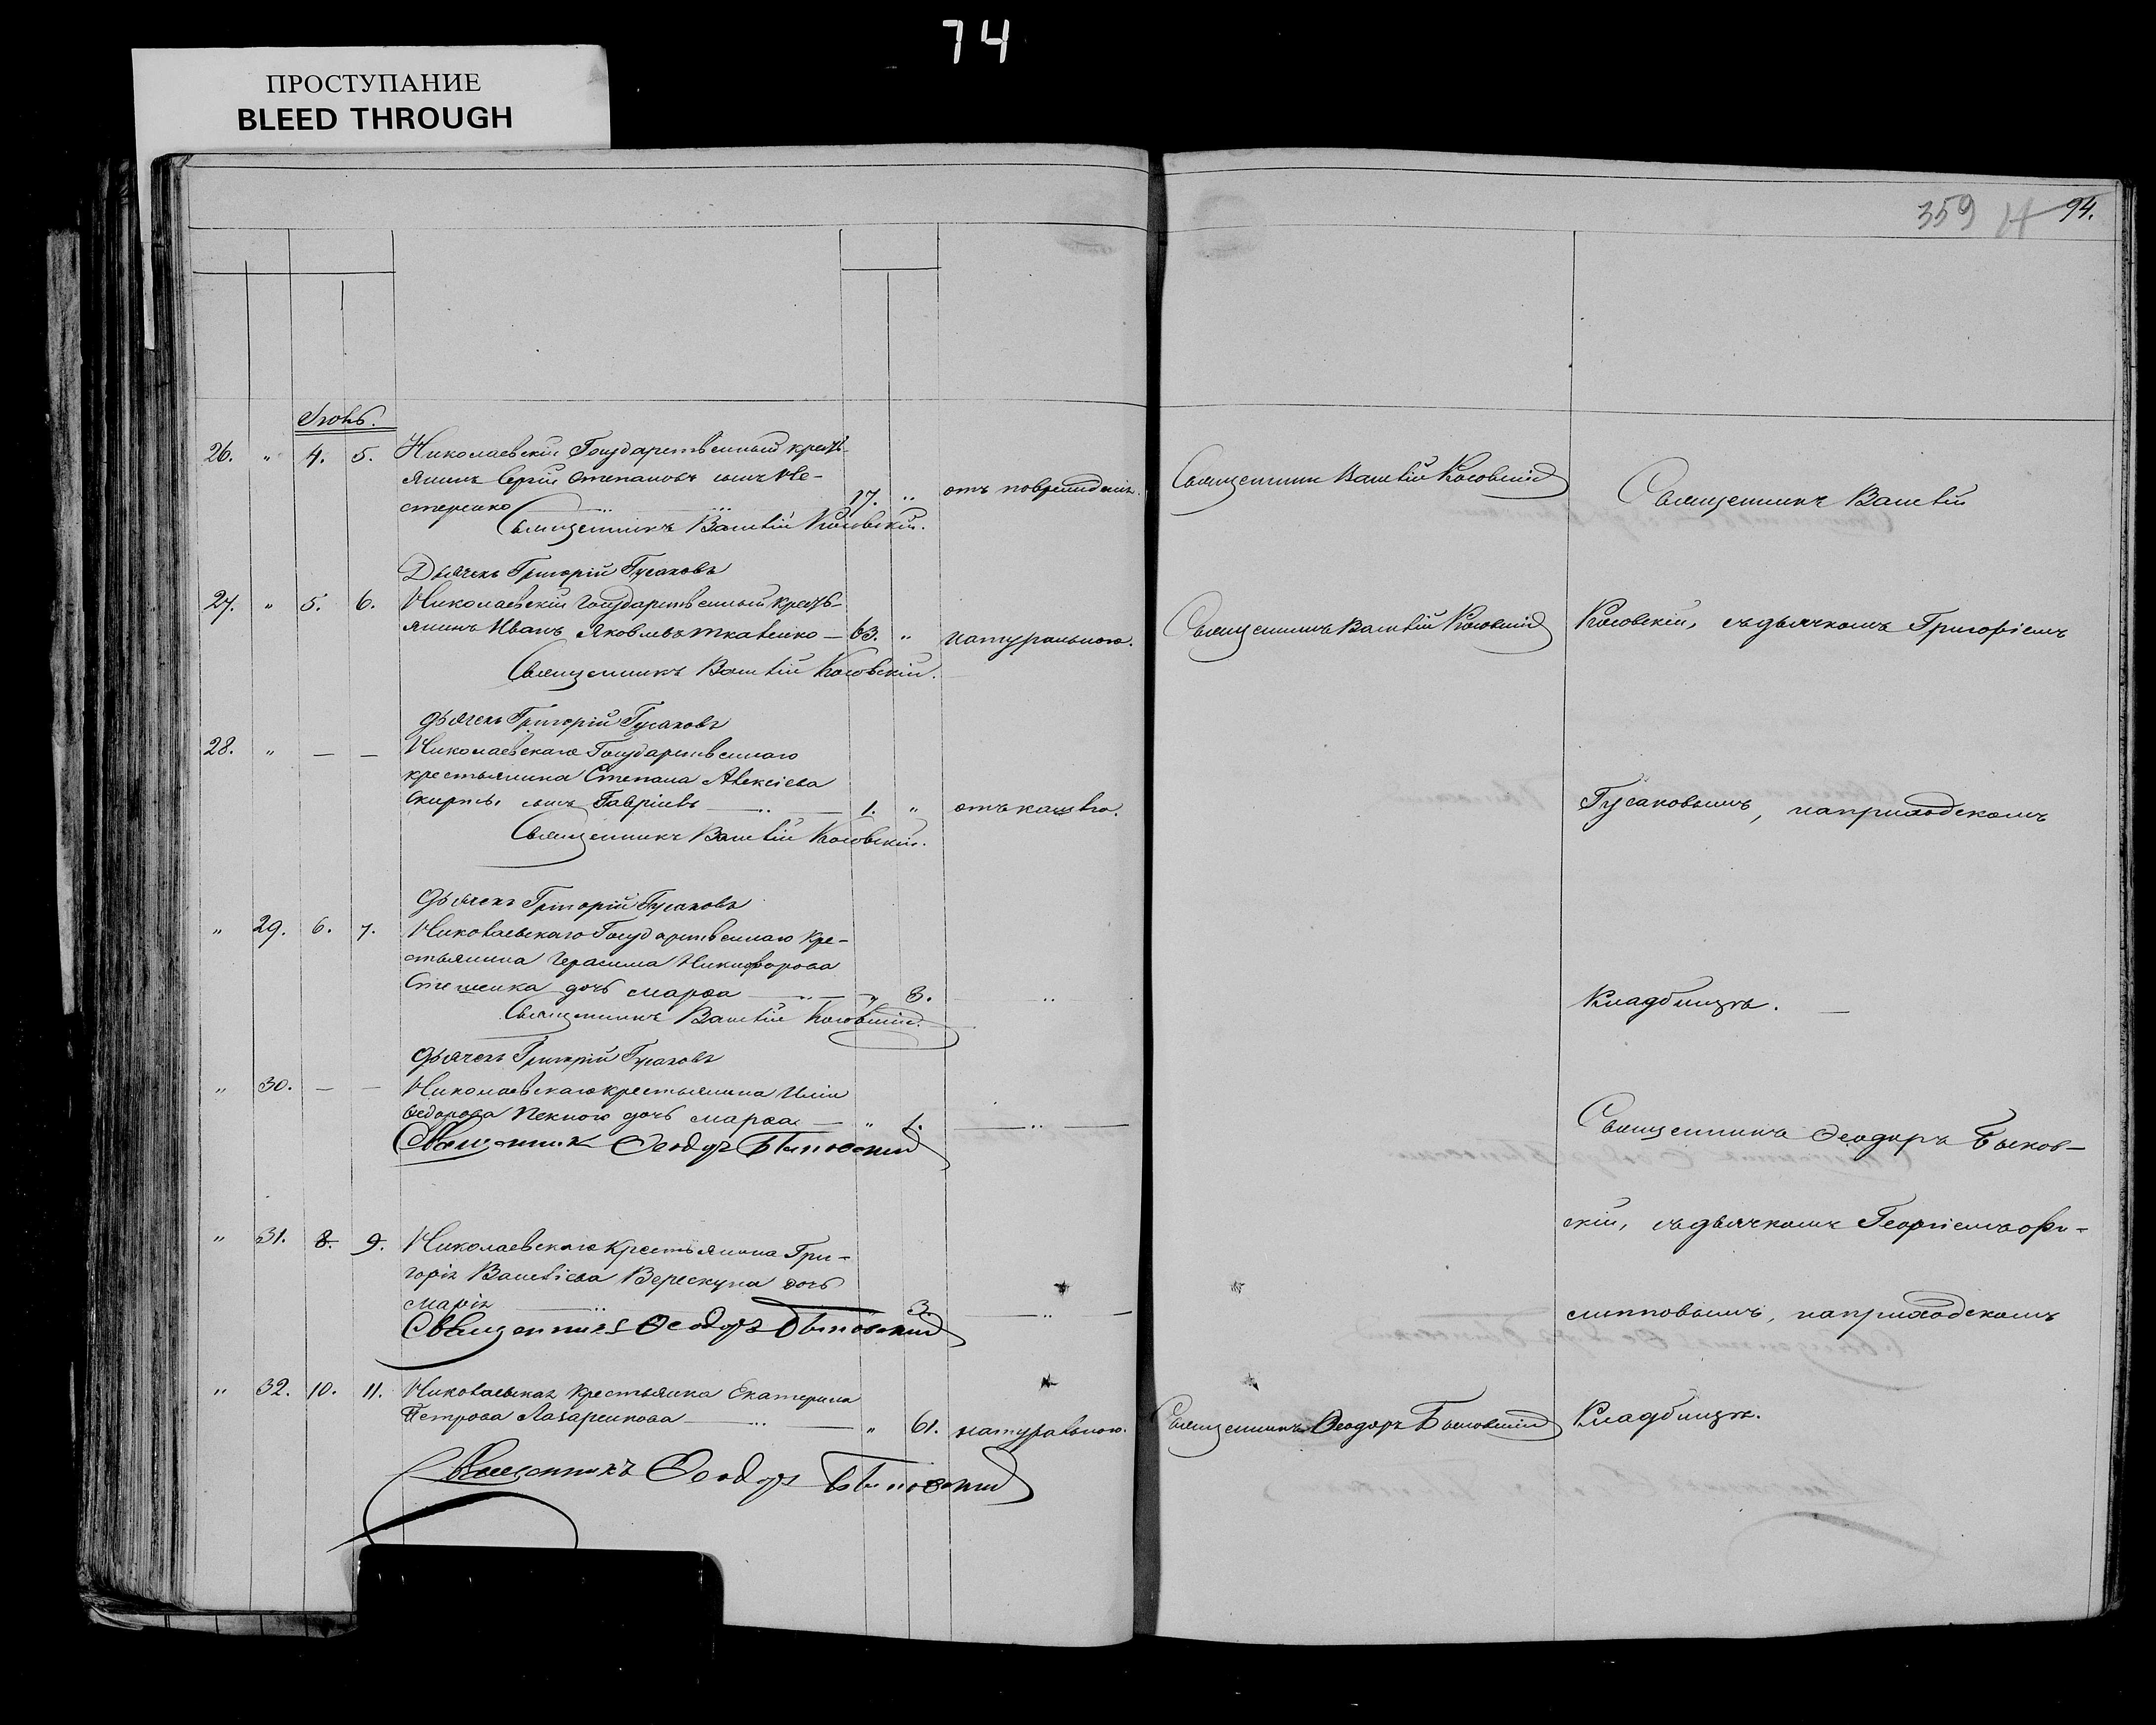 74
ПРОСТУПАНИЕ
BLEED THROUGH
359 94.
Іюнь.
26. " 4. 5. Николаевскій Государственный кресть-
янинъ Сергій Степановъ сынъ Не-
стеренко 17. " отъ поврежденія.
Священникъ Василій Косовскій.
Дьячекъ Григорій Гусаковъ
27. " 5. 6. Николаевскій Государственный кресть-
янинъ Иванъ Яковлевъ Ткаченко — 63. " натуральною.
Священникъ Василій Косовскій.
Дьячекъ Григорій Гусаковъ
28. " — — Николаевскаго Государственнаго
крестьянина Степана Алексіева
Скирты сынъ Гавріилъ — 1. " отъ кашлю.
Священникъ Василій Косовскій.
Дьячекъ Григорій Гусаковъ
" 29. 6. 7. Николаевскаго Государственнаго кре-
стьянина Герасима Никифорова
дочь Марѳа — " 3. "
Священникъ Василій Косовскій.
Дьячекъ Григорій Гусаковъ
" 30. — — Николаевскаго крестьянина Иліи
Ѳедорова дочь Марѳа — " 1. — " —
Священник Ѳеодоръ Быковский
" 31. 8. 9. Николаевскаго крестьянина Гри-
горія Василіева Верескуна дочь
Марія 3. — " —
Священникъ Ѳеодоръ Быковский
" 32. 10. 11. Николаевская крестьянка Екатерина
Петрова Лазаренкова — " 61. натуральною.
Священникъ Ѳеодоръ Быковский
Священникъ Василій Косовскій
Священникъ Василій Косовскій
Священникъ Ѳеодоръ Быковскій
Священникъ Василій
Косовскій, съ дьячкомъ Григоріемъ
Гусаковымъ, на приходскомъ
кладбищѣ. —
Священникъ Ѳеодоръ Быков-
скій, съ дьячкомъ Георгіемъ Фи-
липповымъ, на приходскомъ
кладбищѣ.